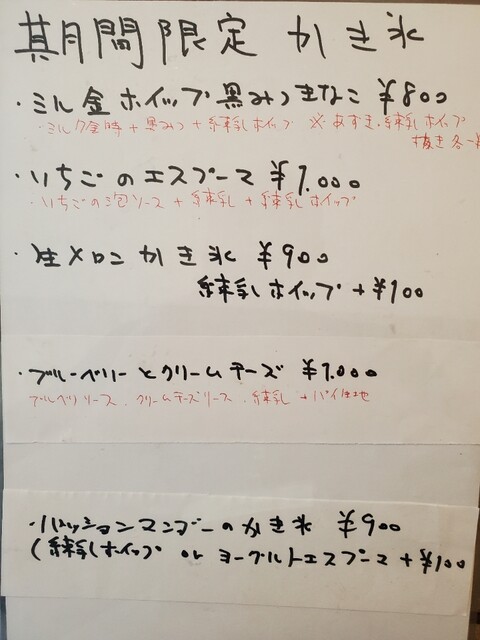 期間限定 かき氷
・ミル金ホイップ黒みつきなこ ¥800
・ミルク金時+黒みつ+練乳ホイップ ※あずき、練乳ホイップ
抜き各
・いちごのエスプーマ ¥1.000
・いちごの泡ソース+練乳+練乳ホイップ
・生メロンかき氷 ¥900
練乳ホイップ+¥100
・ブルーベリーとクリームチーズ ¥1.000
ブルベリソース.クリームチーズソース.練乳+パイ生地
・パッションマンゴーのかき氷 ¥900
(練乳ホイップ or ヨーグルトエスプーマ+¥100